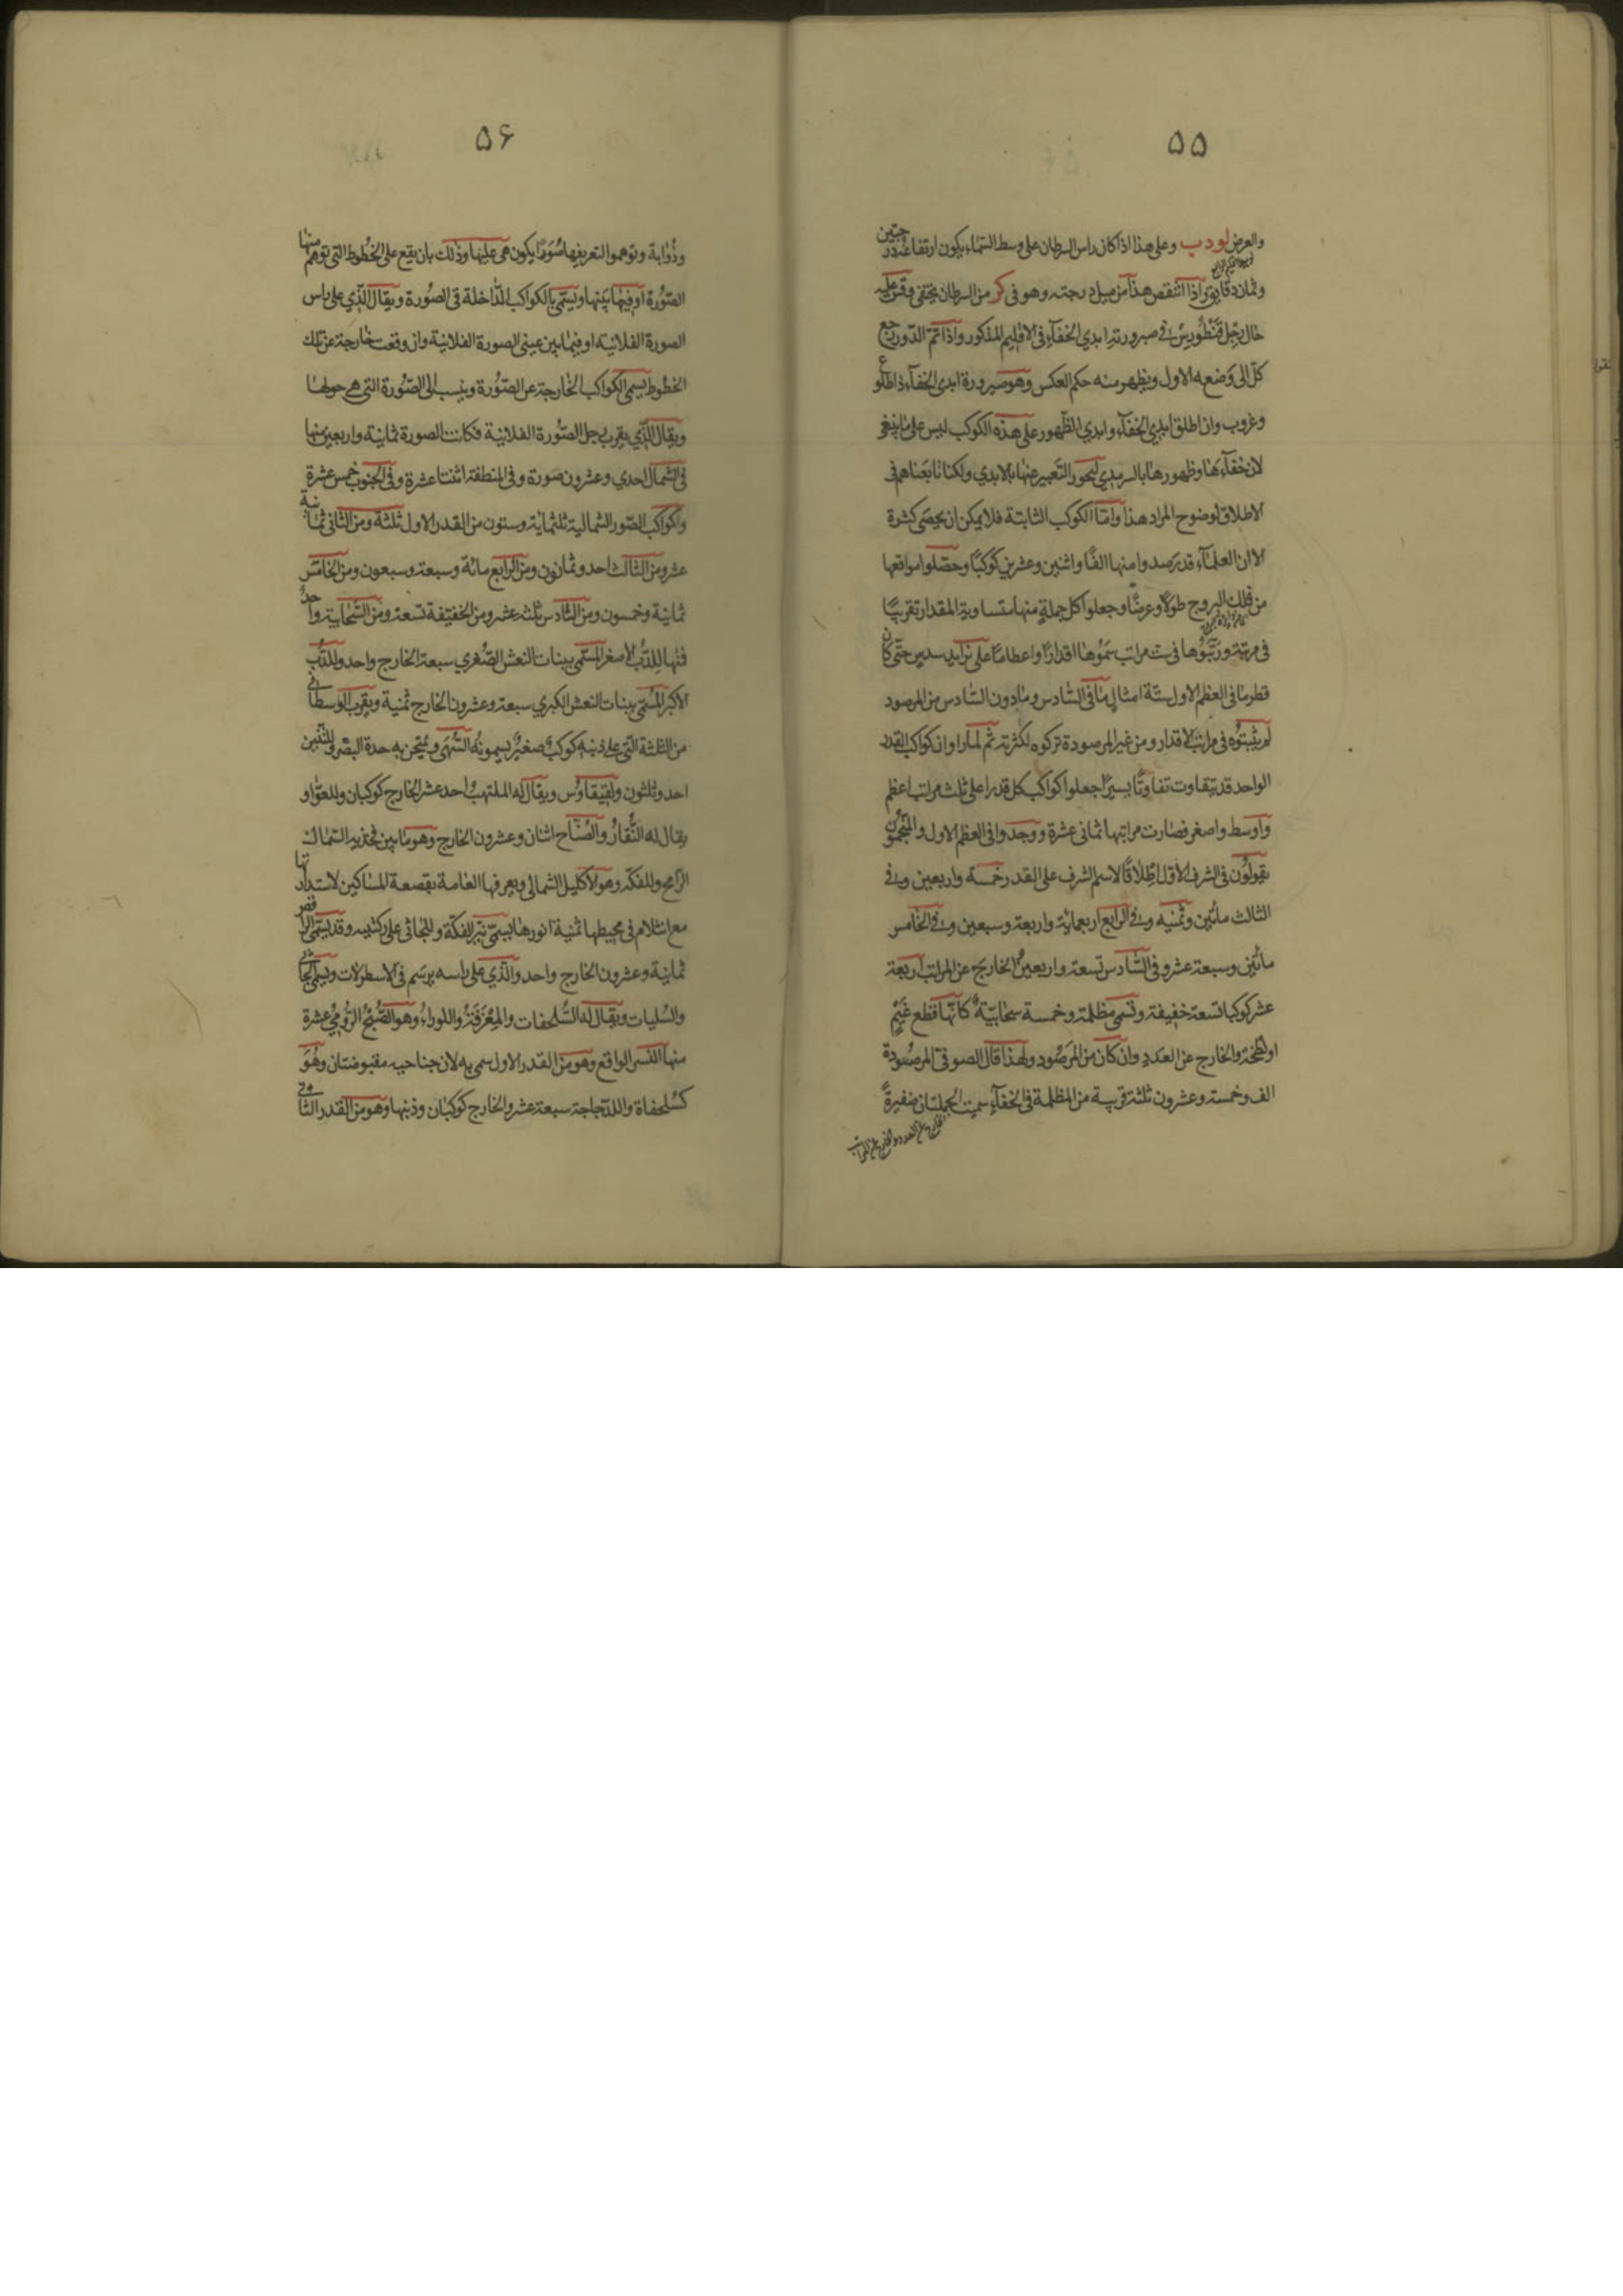 ۵۵
والعرض لو دب وعلى هذا اذا كان راس السرطان على وسط السماء يكون ارتفاعه درجتين
وثمان دقايق اذا انتقص هذا من ميل درجته وهو فى كر من السرطان يختفى وقس عليه
حال رجل قنطورس فى صيرورته ابدي الخفآء فى الاقليم المذكور واذا تم الدور رجع
كل الى وضعه الاول ويظهر منه حكم العكس وهو صيرورة ابدي الخفآء ذا طلوع
وغروب وان اطلق ابدي الخفآء وابدي الظهور على هذه الكوكب ليس على ما ينبغى
لان خفآءها وظهورها بالسرمدي التعبير عنها بالابدي ولكنا تابعناهم فى
الاطلاق لوضوح المراد هذا واما الكوكب الثابتة فلا يمكن ان يحصى كثرة
الا ان العلمآء قد رصدوا منها الفًا واثنين وعشرين كوكبًا وحصلوا مواقعها
من فلك البروج طولًا وعرضًا وجعلوا كل جملةٍ منها متساوية المقدار تقريبًا
فى مرتبة ورتبوها فى ست مراتب سموها اقدارًا واعظامًا على تزايد سدس حتى كان
قطر ما فى العظم الاول ستة امثال ما فى السادس وما دون السادس من المرصود
لم يثبتوه فى مراتب الاقدار ومن غير المرصودة تركوه لكثرته ثم لما راوا ان كواكب القدر
الواحد قد يتفاوت تفاوتًا يسيرًا جعلوا كواكب كل قدر على ثلث مراتب اعظم
واوسط واصغر فصارت مراتبها ثمانى عشرة ووجدوا فى العظم الاول والمنجمون
يقولون فى الشرف الاول اطلاقًا لاسم الشرف على القدر خمسة واربعين وفى
الثالث مأتين وثمنيه وفى الرابع اربعمايه واربعة وسبعين وفى الخامس
مأتين وسبعة عشر وفى السادس تسعة واربعين والخارج عن المراتب اربعة
عشر كوكبا تسعة خفيفة وتسمى مظلمة وخمسة سحابية كانها قطع غيم
او لطخة والخارج عن العدد وان كان من المرصود ولهذا قال الصوفى المرصودة
الف وخمسة وعشرون ثلثة قريبة من المظلمة فى الخفآء سميت الجملتان ضفيرةً
۵۶
وذؤابة وتوهموا لتعريفها صُوَرًا يكون هى عليها وذلك بان يقع على الخطوط التى توهم منها
الصورة او فيما بينها ويسمى بالكواكب الداخلة فى الصورة ويقال الذي على راس
الصورة الفلانية او فيما بين عينى الصورة الفلانية وان وقعت خارجة عن تلك
الخطوط يسمى الكواكب الخارجة عن الصورة وينسب الى الصورة التى هى حولها
ويقال الذي يقرب رجل الصورة الفلانية فكانت الصورة ثمانية واربعين منها
فى الشمال احدي وعشرون صورة وفى المنطقة اثنتا عشرة وفى الجنوب خمس عشرة
وكواكب الصور الشمالية ثلثماية وستون من القدر الاول ثلثة ومن الثانى ثمانية
عشر ومن الثالث احد وثمانون ومن الرابع مائة وسبعة وسبعون ومن الخامس
ثمانية وخمسون ومن السادس ثلثه عشر ومن الخفيفة تسعة ومن السحابية واحد
فمنها للدب الاصغر المسمى ببنات النعش الصغري سبعة الخارج واحد وللدب
الاكبر المسمى ببنات النعش الكبري سبعة وعشرون الخارج ثمنية وبقرب الوسطانى
من الثلثة التى على ذنبه كوكب صغير يسمونه السُّهَى ويمتحن به حدة البصر وللتنين
احد وثلثون ولقيقاوس ويقال له الملتهب احد عشر الخارج كوكبان وللعوا و
يقال له النقار والصناح اثنان وعشرون الخارج وهو ما بين فخذيه السماك
الرامح وللفكه وهو الاكليل الشمالى ويعرفها العامة بقصعة المساكين لاستدارتها
مع انثلام فى محيطها ثمنية انورها يسمى نير الفكة وللجاثى على ركبتيه وقد يسمى الراقص
ثمانية وعشرون الخارج واحد والذي على راسه يرسم فى الاسطرلات ويسمى الجاثى
والسليات ويقال له السلحفات والمعزفة واللورا وهو الصبح الرومى عشرة
منها النسر الواقع وهو من القدر الاول سمى به لان جناحيه مقبوضتان وهو
كسلحفاة وللدجاجة سبعة عشر والخارج كوكبان وذنبها وهو من القدر الثانى